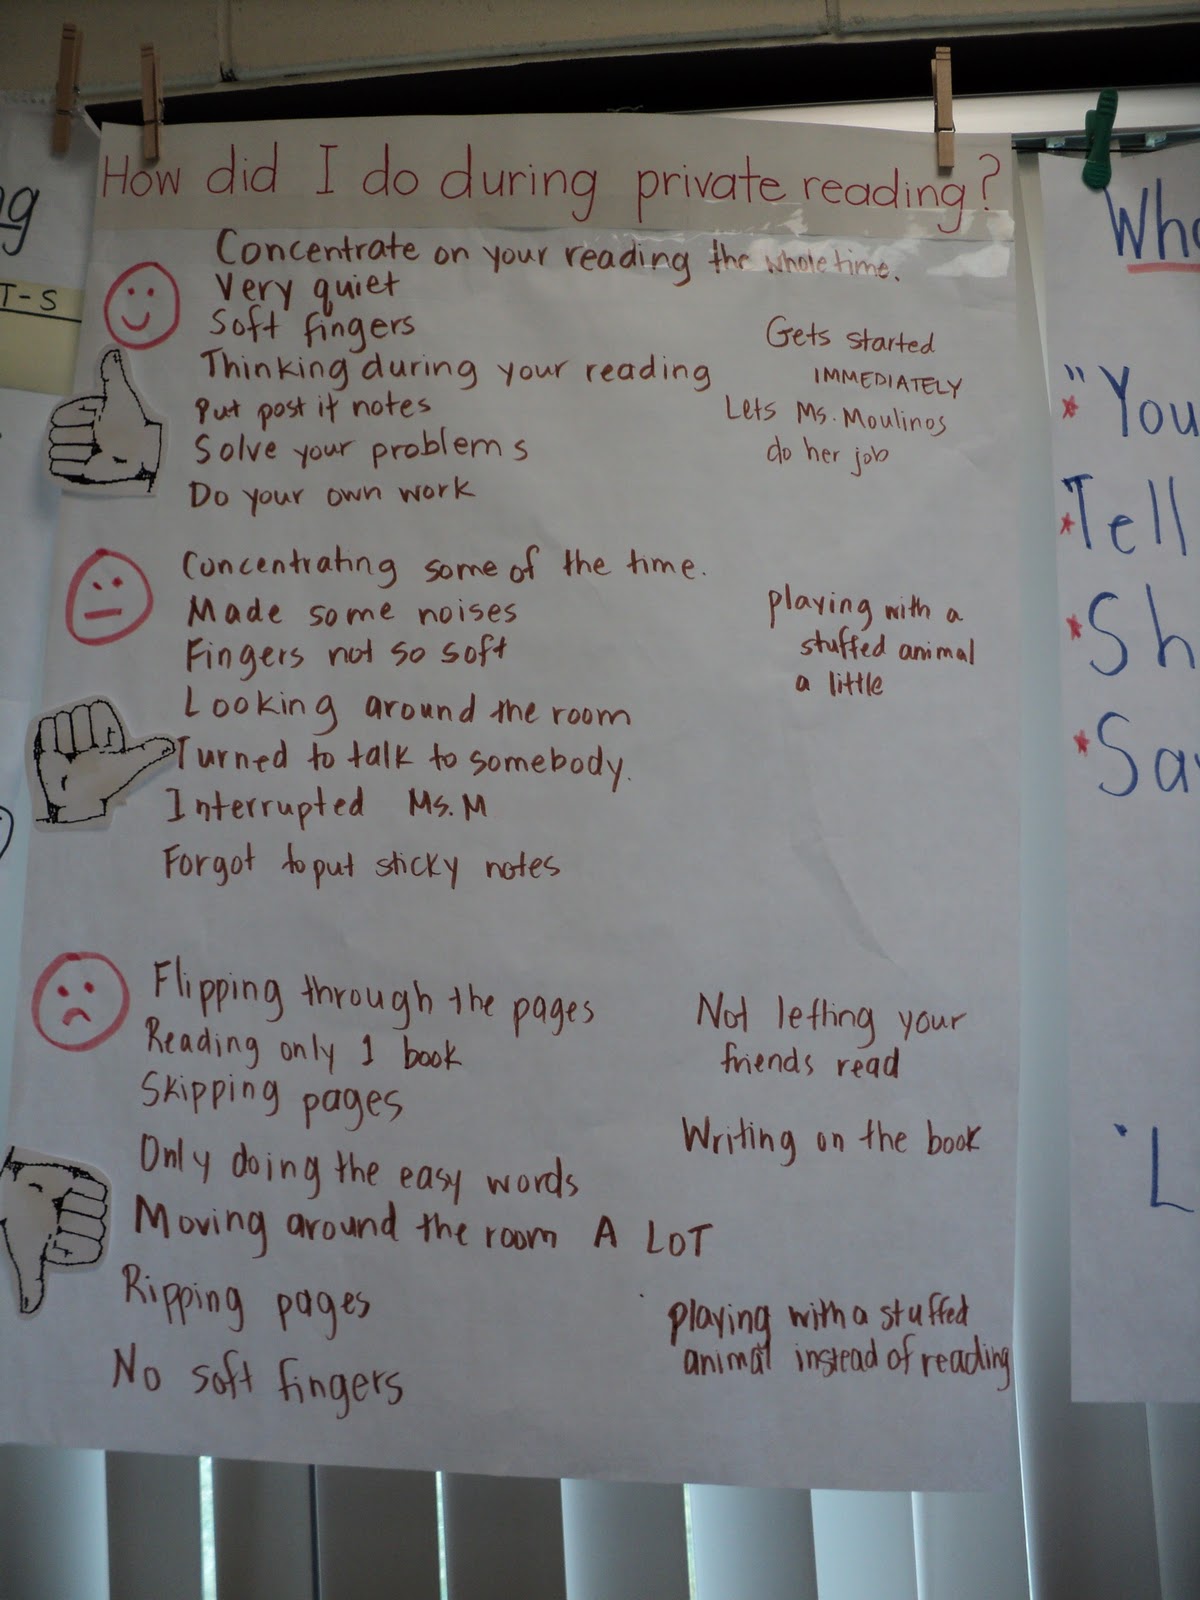 How did I do during private reading?
Concentrate on your reading the whole time.
Very quiet
Soft fingers
Thinking during your reading
Put post it notes
Solve your problems
Do your own work
Gets started
IMMEDIATELY
Lets Ms. Moulinos
do her job
Concentrating some of the time.
Made some noises
Fingers not so soft
Looking around the room
Turned to talk to somebody.
Interrupted Ms. M
Forgot to put sticky notes
playing with a
stuffed animal
a little
Flipping through the pages
Reading only 1 book
Skipping pages
Only doing the easy words
Moving around the room A LOT
Ripping pages
No soft fingers
Not letting your
friends read
Writing on the book
playing with a stuffed
animal instead of reading
ng
T-S
Who
"You
Tell
Sh
Sa
L